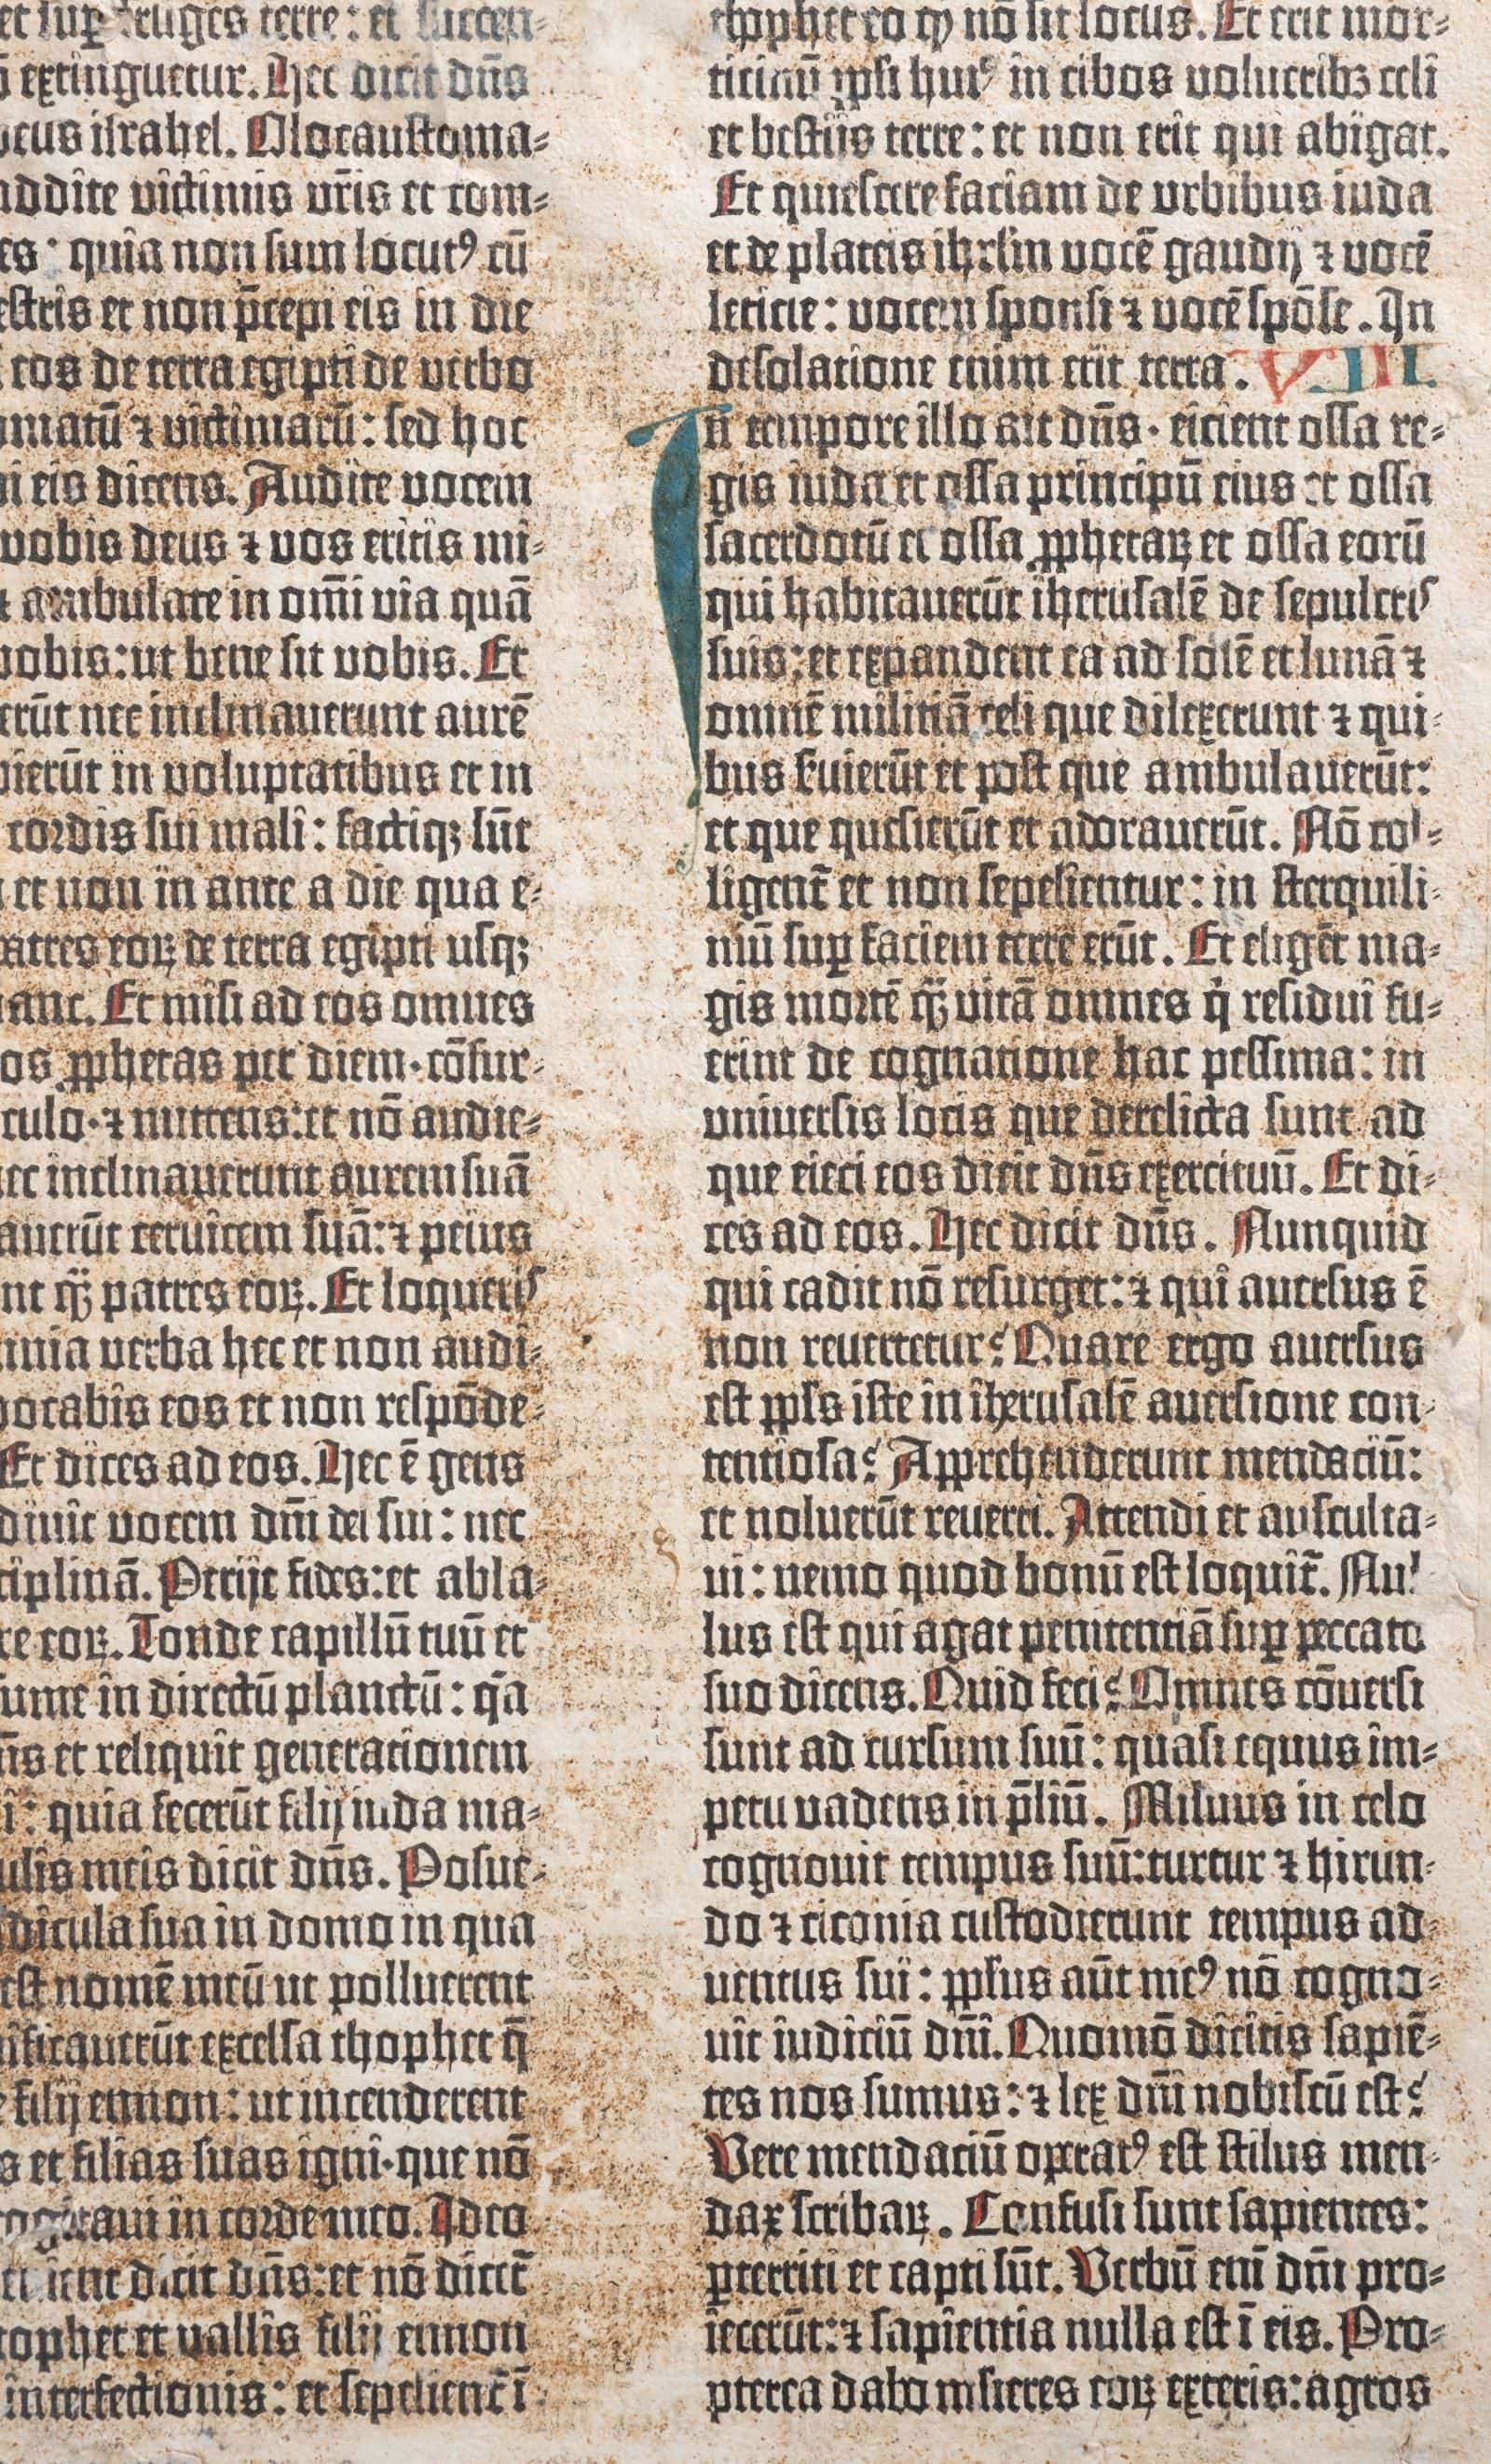 et sup̱ fruges terre: et succen-
extinguetur. Hec dicit dn̄s
deus israhel. Olocaustoma-
addite victimis vr̄is et com-
es· quia non sum locut⁹ cū
estris et non p̄cepi eis in die
eos de terra egipti de verbo
omatū ⁊ victimarū: sed hoc
i eis dicens. Audite vocem
vobis deus ⁊ vos eritis mi-
⁊ ambulate in om̄i via quā
vobis: ut bene sit vobis. Et
erūt nec inclinaverunt aurē
bierūt in voluptatibus et in
cordis sui mali: factiqꝫ sūt
et non in ante a die qua e-
patres eoꝝ de terra egipti usqꝫ
hanc. Et misi ad eos omnes
os ꝓphetas per diem· cōsur-
culo· ⁊ mittens: et nō audie-
ec inclinaverunt aurem suā
averūt cervicem suā: ⁊ peius
nt qꝫ̄ patres eoꝝ. Et loqueris
mnia verba hec et non audi-
vocabis eos et non respōde-
Et dices ad eos. Hec ē gens
divit vocem dn̄i dei sui: nec
ciplinā. Periit fides: et abla-
te eoꝝ. Tonde capillū tuū et
sume in directū planctū: q̄a
n̄s et reliquit generationem
i: quia fecerūt filij iuda ma-
ulis meis dicit dn̄s. Posue-
dicula sua in domo in qua
est nomē meū ut polluerent
dificaverūt excelsa thophet q̄
filij ennon: ut incenderent
s et filias suas igni· que nō
cogitavi in corde meo. Ideo
venient dicit dn̄s: et nō dicet̄
tophet et vallis filij ennon
interfectionis: et sepelient̄ ī
thophet eo ꝙ nō sit locus. Et erit mor-
ticinū ipsi hui⁹ in cibos volucribꝫ celi
et bestiis terre: et non erit qui abigat.
Et quiescere faciam de urbibus iuda
et de plateis ihrlm vocē gaudij ⁊ vocē
leticie: vocem sponsi ⁊ vocē spōse. In
desolatione enim erit terra. VIII.
In tempore illo ait dn̄s· eicient ossa re-
gis iuda et ossa principū eius et ossa
sacerdotū et ossa ꝓphetaꝝ et ossa eorū
qui habitaverūt iherusalē de sepulcris
suis: et expandent ea ad solē et lunā ⁊
omnē militiā celi que dilexerunt ⁊ qui-
bus s̄vierūt et post que ambulaverūt:
et que quesierūt et adoraverūt. Nō col-
ligent̄ et non sepelientur: in sterquili-
niū sup̱ faciem terre erūt. Et eligēt ma-
gis mortē qꝫ̄ vitā omnes q̇ residui fu-
erint de cognatione hac pessima: in
universis locis que derelicta sunt ad
que eieci eos dicit dn̄s exercituū. Et di-
ces ad eos. Hec dicit dn̄s. Nunquid
qui cadit nō resurget: ⁊ qui aversus ē
non revertetur? Quare ergo aversus
est pp̄ls iste in iherusalē aversione con-
tentiosa? Apprehenderunt mendaciū:
et noluerūt reverti. Attendi et ausculta-
vi: nemo quod bonū est loquit̄. Nul-
lus est qui agat penitentiā sup̱ peccato
suo dicens. Quid feci? Omnes cōversi
sunt ad cursum suū: quasi equus im-
petu vadens in p̄liū. Milvus in celo
cognovit tempus suū: turtur ⁊ hirun-
do ⁊ ciconia custodierunt tempus ad-
ventus sui: pp̄lus aūt me⁹ nō cogno-
vit iudiciū dn̄i. Quomō dicitis sapiē-
tes nos sumus: ⁊ lex dn̄i nobiscū est?
Vere mendaciū operat⁹ est stilus men-
dax scribaꝝ. Confusi sunt sapientes:
p̱territi et capti sūt. Verbū enī dn̄i pro-
iecerūt: ⁊ sapientia nulla est ī eis. Pro-
pterea dabo mlieres eoꝝ exteris: agros